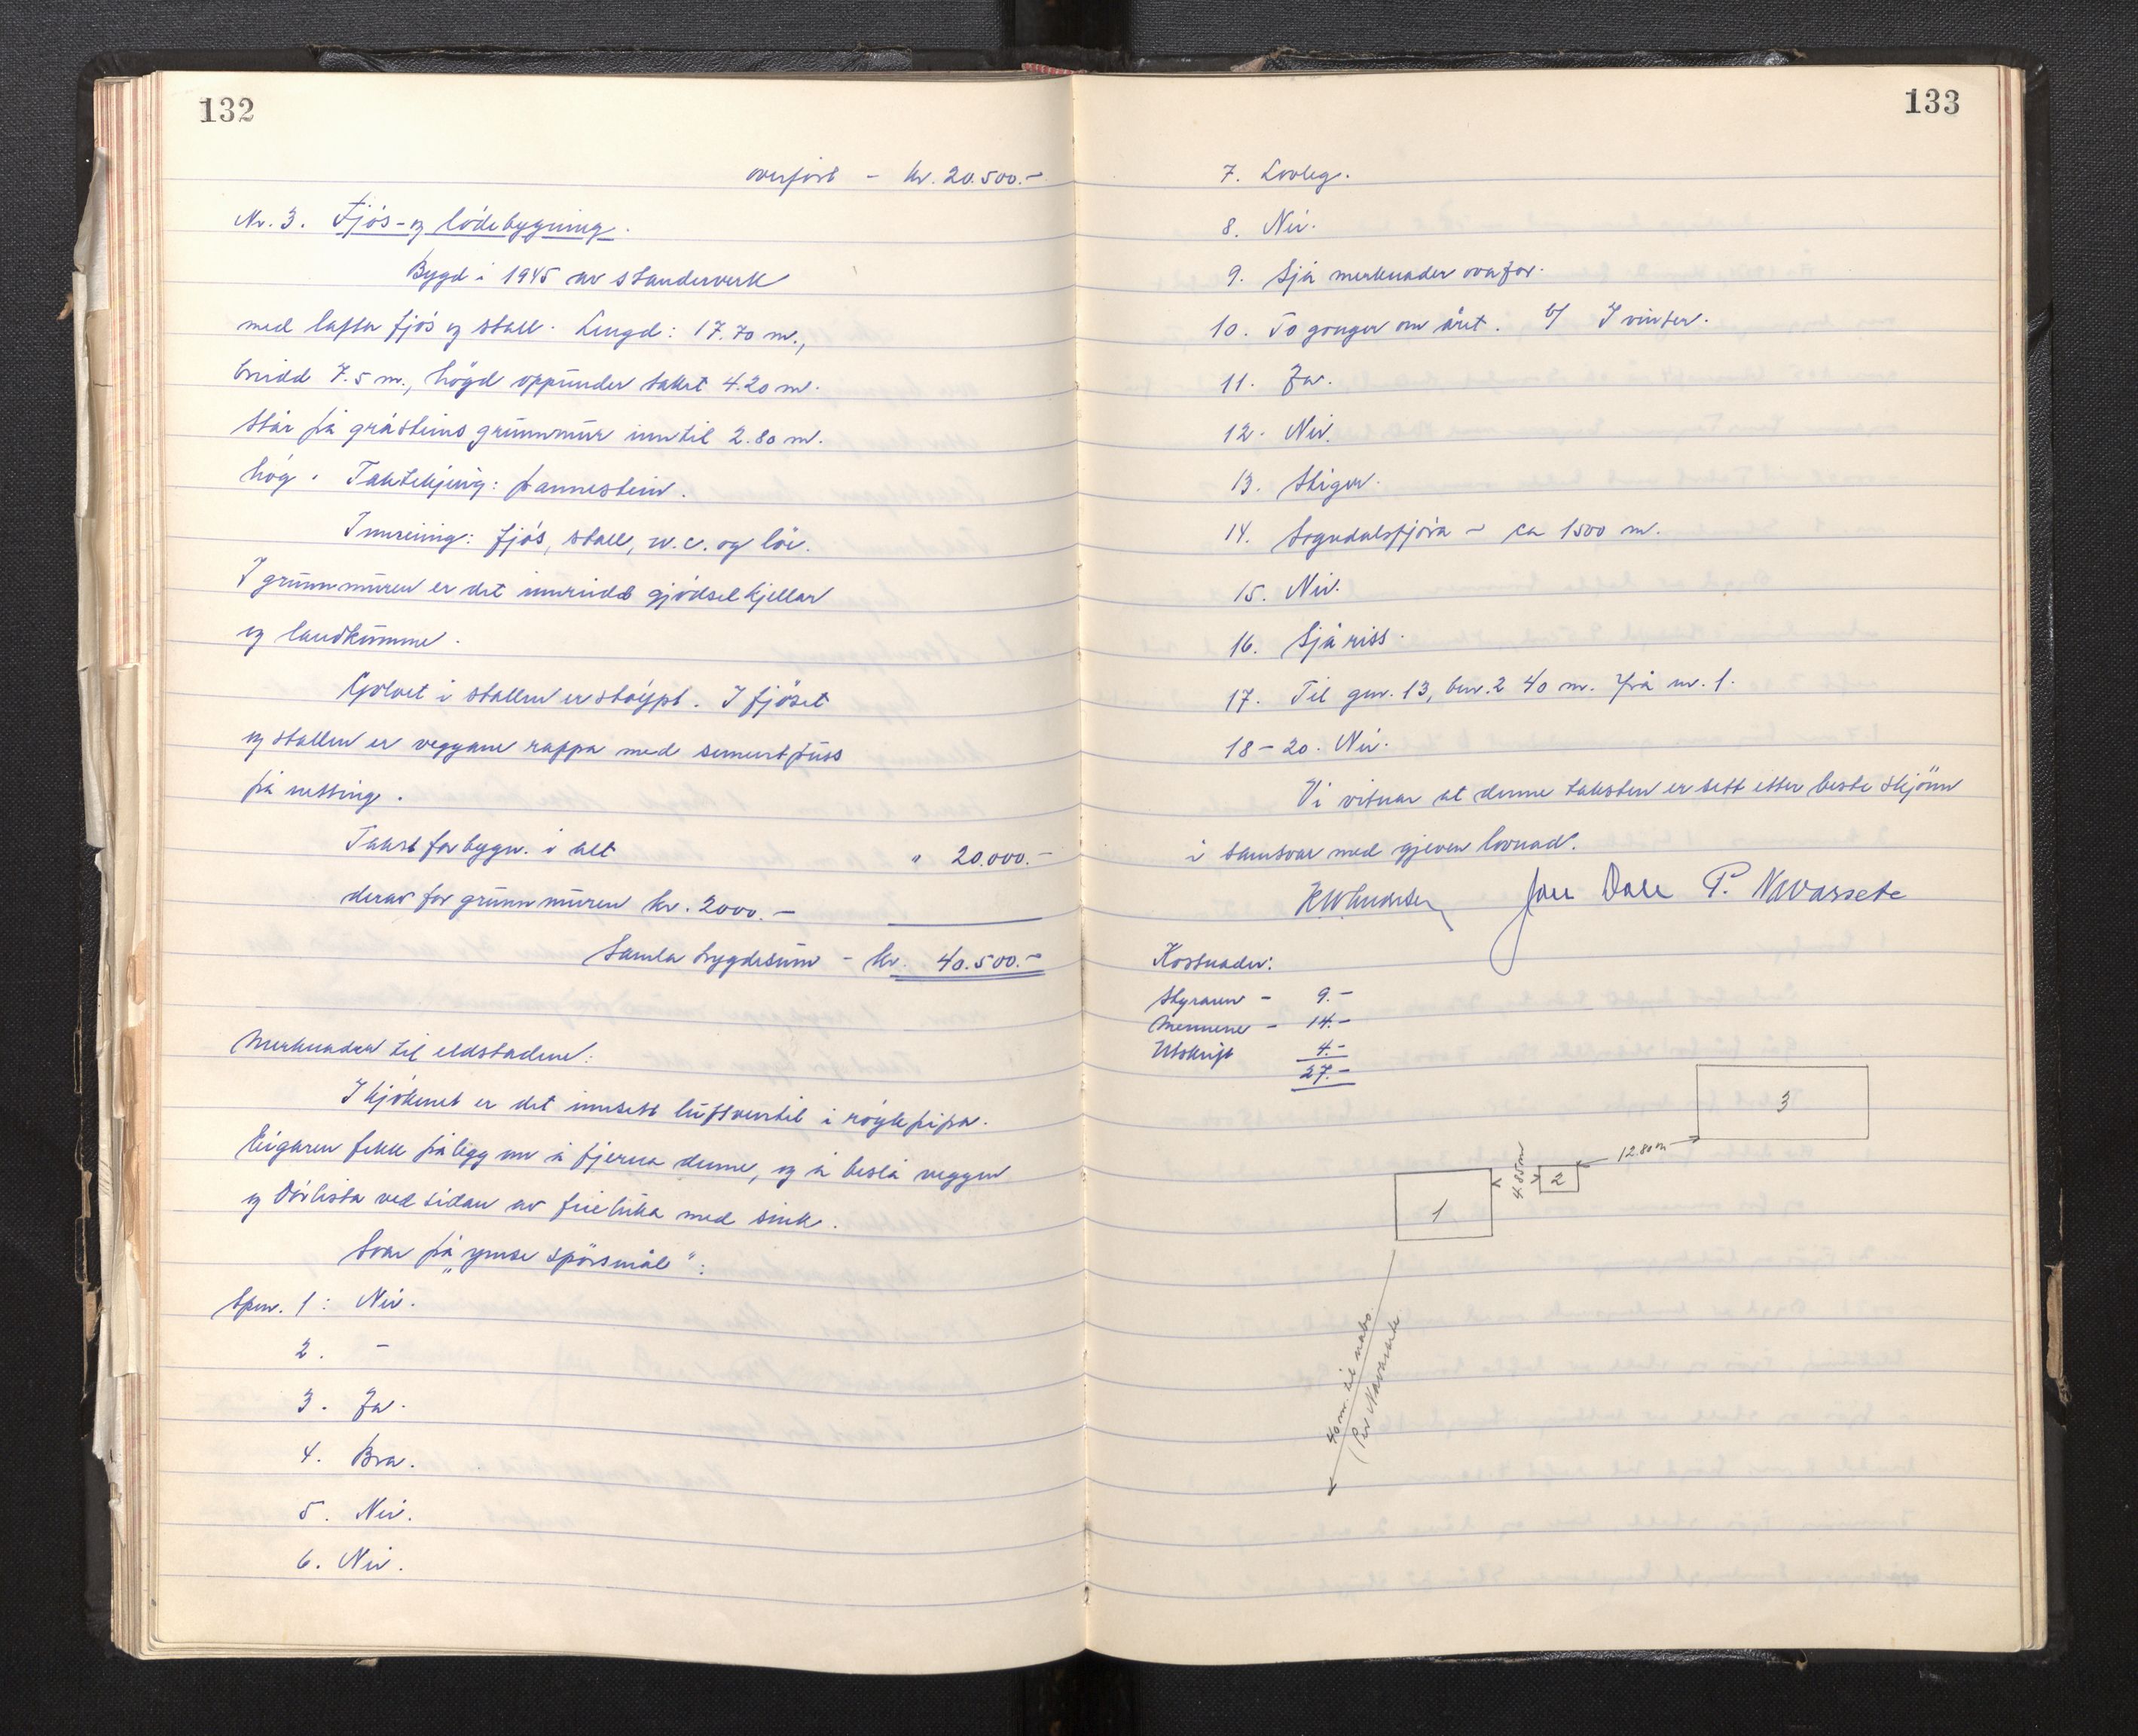 132
overført - kr. 20.500.-
Nr. 3. Fjós- og lødebygning.
Bygd i 1945 av standerverk
med lafta fjós og stall. Lengd: 17.70 m.,
breidd 7.5 m., högd oppunder taket 4.20 m.
Står på gråsteins grunnmur inntil 2.80 m.
hög. Taktekjing: pannestein.
Innreiing: fjós, stall, w.c. og löe.
I grunnmuren er det innreidd gjödselkjellar
og landkumme.
Golvet i stallen er støypt. I fjöset
og stallen er veggane rappa med sementpuss
på netting.
Takst for bygn. i alt " 20.000.-
derav for grunnmuren kr. 2000.-
Samla brygdesum - kr. 40.500.-
Merknader til eldstadene:
I kjökenet er det innsett luftventil i røykpipa.
Eigaren fekk pålegg um å fjerna denne, og å beslå veggen
og dörlista ved sidan av feieluka med sink.
Svar på "ymse spörsmål":
Spm. 1: Nei.
2. -
3. Ja.
4. Bra.
5. Nei.
6. Nei.
133
7. Lovleg.
8. Nei.
9. Sjå merknader ovafor.
10. To gonger om året. b/ I vinter.
11. Ja.
12. Nei.
13. Stigar.
14. Sogndalsfjöra - ca 1500 m.
15. Nei.
16. Sjå riss.
17. Til gnr. 13, bnr. 2 40 m. frå nr. 1.
18-20. Nei.
Vi vitnar at denne taksten er sett etter beste skjönn
i samsvar med gjeven lovnad.
Jon Dale P. Navarsete
Kostnader:
Styraren - 9.-
Mennene - 14.-
Utskrift 4.-
27.-
3
12.80 m
4.85 m
2
1
40 m. til nabo
(Per Navarsete